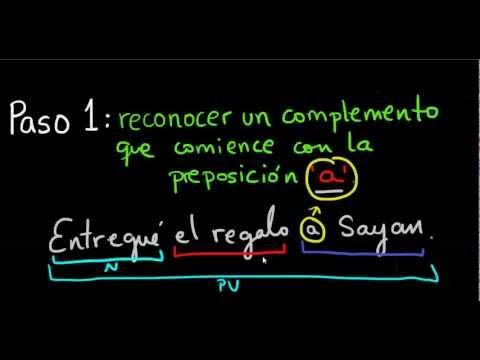 Paso 1: reconocer un complemento
que comience con la
preposición 'a'.
Entregué el regalo a Sayan.
N
PV